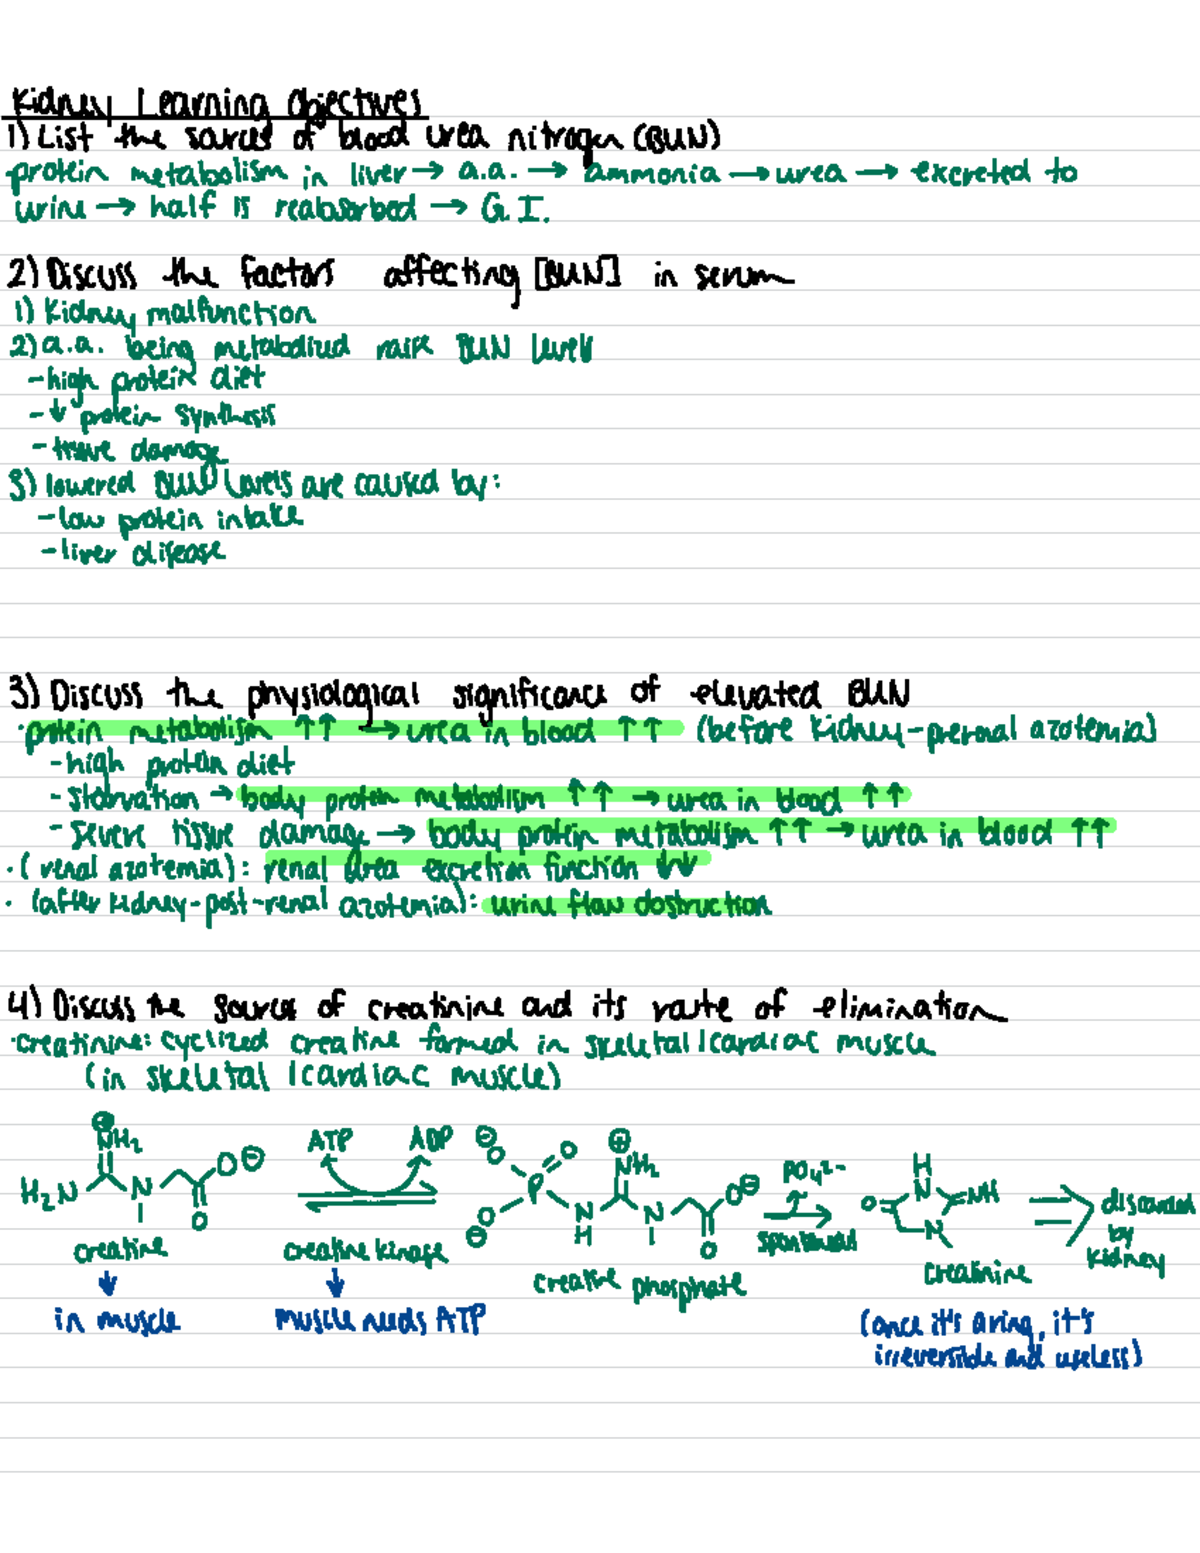 Kidney Learning Objectives
1) List the sources of blood urea nitrogen (BUN)
protein metabolism in liver → a.a. → ammonia → urea → excreted to
urine → half is reabsorbed → G.I.
2) Discuss the factors affecting [BUN] in serum
1) Kidney malfunction
2) a.a. being metabolized raise BUN levels
- high protein diet
- ↓ protein synthesis
- tissue damage
3) lowered BUN levels are caused by:
- low protein intake
- liver disease
3) Discuss the physiological significance of elevated BUN
· protein metabolism ↑↑ → urea in blood ↑↑ (before kidney - prerenal azotemia)
- high protein diet
- starvation → body protein metabolism ↑↑ → urea in blood ↑↑
- severe tissue damage → body protein metabolism ↑↑ → urea in blood ↑↑
· (renal azotemia): renal urea excretion function ↓↓
· (after kidney - post-renal azotemia): urine flow obstruction
4) Discuss the source of creatinine and its route of elimination
· creatinine: cyclized creatine formed in skeletal/cardiac muscle
(in skeletal/cardiac muscle)
⊕ NH₂ H₂N N O⊖ O
ATP ADP
⊖O O P O⊖ N H ⊕ NH₂ N O⊖ O
PO₄²⁻
spontaneous
H N O NH N
discarded by kidney
creatine creatine kinase creatine phosphate creatinine
↓ in muscle
↓ muscle needs ATP
(once it's a ring, it's
irreversible and useless)